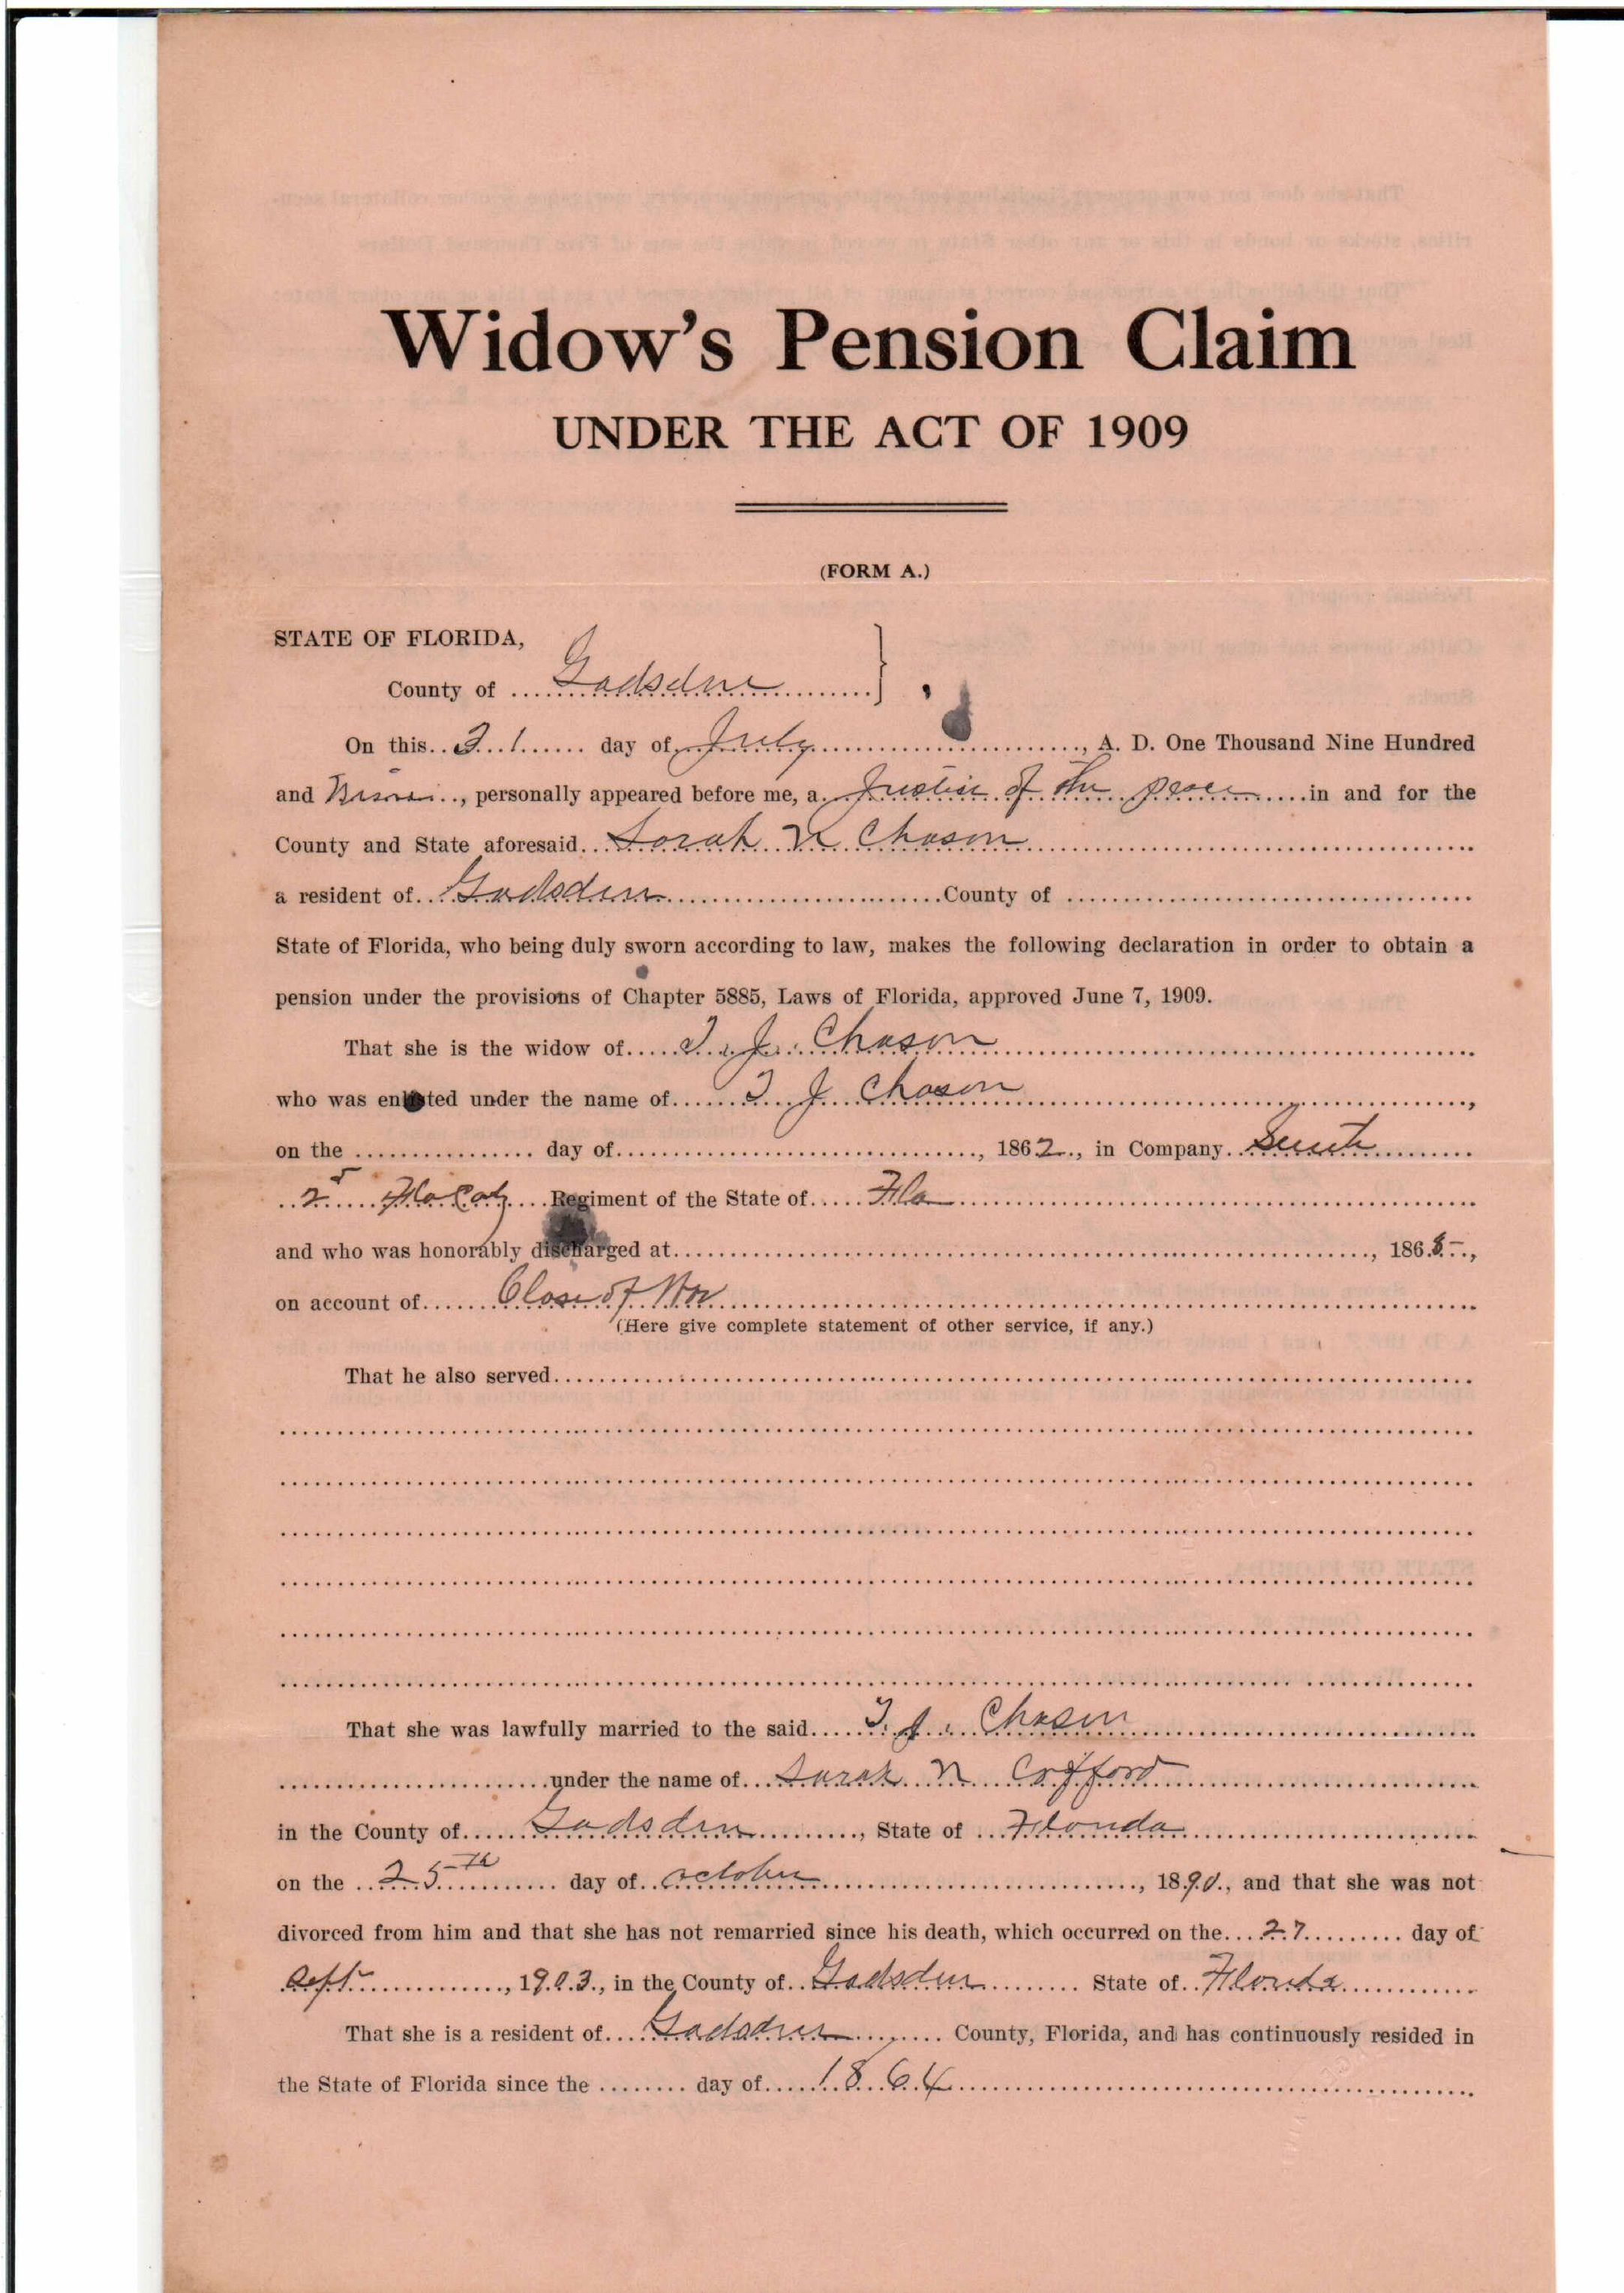 Widow's Pension Claim
UNDER THE ACT OF 1909
(FORM A.)
STATE OF FLORIDA,
County of Gadsden
On this 31 day of July, A. D. One Thousand Nine Hundred
and, personally appeared before me, a Justice of the peace in and for the
County and State aforesaid Sarah N Chason
a resident of Gadsden County of
State of Florida, who being duly sworn according to law, makes the following declaration in order to obtain a
pension under the provisions of Chapter 5885, Laws of Florida, approved June 7, 1909.
That she is the widow of T. J. Chason
who was enlisted under the name of T J Chason
on the day of, 1862, in Company
Regiment of the State of Fla
and who was honorably discharged at, 1865,
on account of Close of War
(Here give complete statement of other service, if any.)
That he also served
That she was lawfully married to the said T. J. Chason
under the name of Sarah N
in the County of Gadsden, State of Florida
on the 25th day of october, 1890, and that she was not
divorced from him and that she has not remarried since his death, which occurred on the 27 day of
Sept, 1903, in the County of Gadsden State of Florida
That she is a resident of Gadsden County, Florida, and has continuously resided in
the State of Florida since the day of 1864